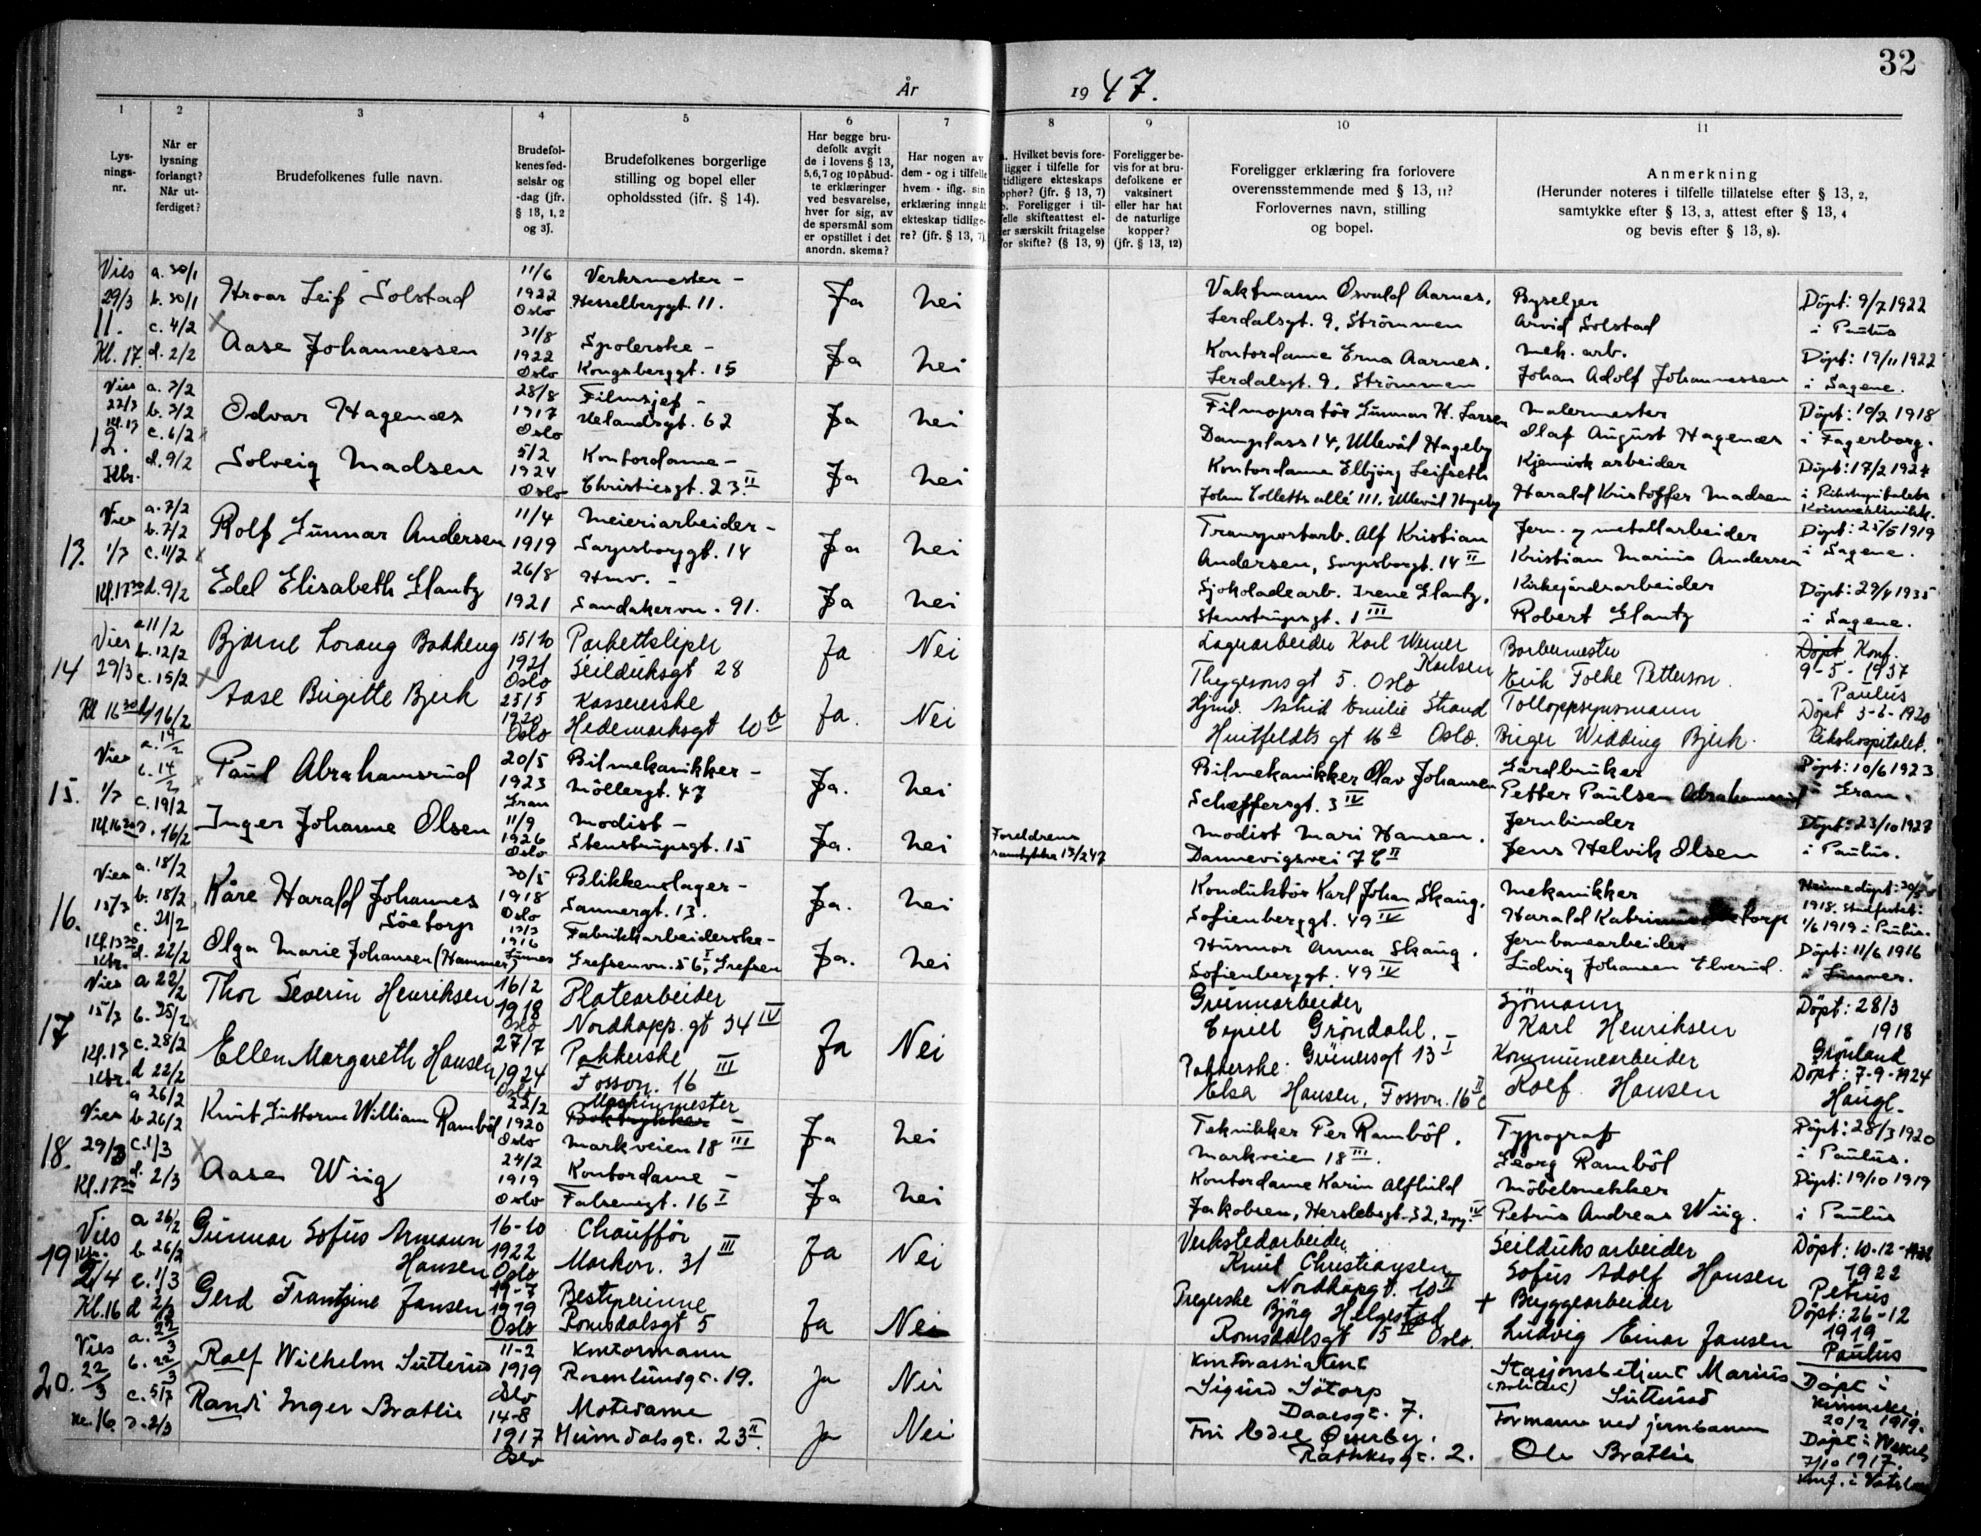 32
År 1947.
1
2
3
4
5
6
7
8
9
10
11
Lys-
nings-
nr.
Når er
lysning
forlangt?
Når ut-
ferdiget?
Brudefolkenes fulle navn.
Brudefol-
kenes fød-
selsår og
-dag (jfr.
§ 13, 1, 2
og 3).
Brudefolkenes borgerlige
stilling og bopel eller
opholdssted (jfr. § 14).
Har begge bru-
defolk avgit
de i lovens § 13,
5,6,7 og 10 påbud-
te erklæringer
ved besvarelse,
hver for sig, av
de spørsmål som
er opstillet i det
anordn. skema?
Har nogen av
dem - og i tilfelle
hvem - iflg. sin
erklæring inngåt
ekteskap tidlige-
re? (jfr. § 13, 7)
a. Hvilket bevis fore-
ligger i tilfelle for
tidligere ekteskaps
opher? (jfr. § 13, 7)
b. Foreligger i til-
felle skifteattest el-
ler særskilt fritagelse
for skifte? (§ 13, 9)
Foreligger be-
vis for at bru-
defolkene er
vaksinert
eller har hat
de naturlige
kopper?
(jfr. § 13, 12)
Foreligger erklæring fra forlovere
overensstemmende med § 13, 11?
Forlovernes navn, stilling
og bopel.
Anmerkning
(Herunder noteres i tilfelle tillatelse efter § 13, 2,
samtykke efter § 13, 3, attest efter § 13, 4
og bevis efter § 13, 8).
Vies
29/3
11.
Kl. 17.
a. 30/1
b. 30/1
c. 4/2
d. 2/2
Hroar Leif Solstad
11/6
1922
Oslo
Verksmester -
Hesselberggt. 11.
Ja
Nei
Vaktmann Osvald Aarnes.
Lerdalsgt. 9, Strømmen
Byselger
Arvid Solstad
Döpt: 9/7 1922
i Paulus
Aase Johannessen
31/8
1922
Oslo
Spolerske -
Kongsberggt. 15
Ja
Nei
Kontordame Erna Aarnes.
Lerdalsgt. 9. Strömmen
Mek. arb.
Johan Adolf Johannessen
Döpt: 19/11 1922
i Sagene.
Vies
22/3
Kl. 13
12.
Kbr.
a. 7/2
b. 7/2
c. 6/2
d. 9/2
Odvar Hagenæs
28/8
1917
Oslo
Filmsjef -
Uelandsgt. 62
Ja
Nei
Filmopratör Gunnar H. Larsen
Damplass 14, Ullevål Hageby
Malermester
Olaf August Hagenæs
Döpt: 10/2 1918
i Fagerborg.
Solveig Madsen
5/2
1924
Oslo
Kontordame -
Christiesgt. 23 II
Ja
Nei
Kontordame Elbjörg Leifseth
John Colletts allé 111. Ullevål Hageby
Kjemisk arbeider
Harald Kristoffer Madsen
Döpt: 17/2 1924
i Rikshospitalets
Kvinneklinikk.
Vies
13.
1/7
Kl. 17 30
a. 7/2
b. 7/2
c. 11/2
d. 9/2
Rolf Gunnar Andersen
11/4
1919
Meieriarbeider -
Sarpsborggt. 14
Ja
Nei
Transportarb. Alf Kristian
Andersen, Sarpsborgt. 14 II
Jern- og metallarbeider
Kristian Marius Andersen
Döpt: 25/5 1919
i Sagene.
Edel Elisabeth Glantz
26/8
1921
Hmv. -
Sandakervn. 91.
Ja
Nei
Sjokoladearb. Irene Glantz,
Stenstrupsgt. 1 III
Kirkegårdsarbeider
Robert Glantz
Döpt: 29/4 1935
i Sagene.
Vies
14
29/3
Kl 16 30
a 11/2
b. 12/2
c. 15/2
d 16/2
Bjarne Lorang Bakkeng
15/10
1921
Oslo
Parkettsliper
Seilduksgt 28
Ja
Nei
Lagerarbeider Karl Werner
Karlsen
Thygesons gt 5. Oslo
Barbermester
Erik Folke Petterson.
Döpt Konf.
9-5-1937
Paulus
Aase Birgitte Bjerk
23/5
1920
Oslo
Kassererske
Hedemarksgt 10 b
Ja.
Nei
Hjmv. Astrid Emilie Strand
Huitfeldts gt 16 a Oslo.
Tolloppsynsmann
Birger Widding Bjerk.
Döpt 3-6-1920
Rikshospitalet.
Vies
15.
1/7
Kl. 16 30
a. 14/2
b. 14/2
c. 19/2
d. 16/2
Paul Abrahamsrud
20/5
1923
Gran
Bilmekanikker -
Möllergt. 47
Ja.
Nei
Bilmekanikker Olav Johansen
Scheffersgt. 3 IV
Gårdbruker
Petter Paulsen Abrahamsrud
Döpt: 10/6 1923
i Gran.
Inger Johanne Olsen
11/9
1926
Oslo
Modist -
Stenstrupsgt. 15
Ja.
Nei
Foreldrenes
samtykke 13/2 47
Modist Mari Hansen.
Dannevigsvei 7 C II
Jernbinder
Jens Helvik Olsen
Döpt: 23/10 1927
i Paulus.
Vies
15/3
16.
Kl. 13 30
Kbr.
a. 18/2
b. 18/2
c. 21/2
d. 22/2
Kåre Harald Johannes
Söetorp
30/5
1918
Oslo
Blikkenslager -
Sannergt. 13.
Ja.
Nei
Konduktör Karl Johan Skaug.
Sofienberggt. 49 IV
Mekanikker
Harald
Hjemmedöpt: 30/5
1918.
1/6 1919 i Paulus.
Olga Marie Johansen (Hammer)
1916
Fabrikkarbeiderske -
Grefsenvn. 56 I, Grefsen
Ja.
Nei
Husmor Anna Skaug.
Sofienberggt. 49 IV
Jernbanearbeider
Ludvig Johansen Elverud.
Döpt: 11/6 1916
Vies
15/3
17
Kl. 13
Kbr.
a 22/2
b. 25/2
c. 28/2
d 22/2
Thor Severin Henriksen
16/2
1918
Oslo
Platearbeider
Nordkapp. gt 34 IV
Ja
Nei
Grunnarbeider
Egill Gröndahl. -
Grünersgt 13 I
Sjömann
Karl Henriksen
Döpt: 28/3
1918
Grönland
Ellen Margareth Hansen
27/7
1924
Oslo
Pakkerske
Fossvn. 16 III
Pakkerske.
Elsa Hansen, Fossvn. 16 c II
Kommunearbeider
Rolf Hansen
Döpt: 7-9-1924
Haugl.
Vies
18.
29/3
Kl. 17 30
a 26/2
b 26/2
c. 1/3
d. 2/3
Knut Guttorm William Ramböl
22/2
1920
Oslo
Maskinmester
Boktrykker -
Markveien 18 III
Ja
Nei
Tekniker Per Ramböl.
Markveien 18 III.
Typograf
Georg Ramböl
Döpt: 28/3 1920
i Paulus.
Aase Wiig
24/2
1919
Oslo
Kontordame -
Falsensgt. 16 I
Ja
Nei
Kontordame Karin Alfhild
Jakobsen, Herslebsgt. 32, IV
Möbelsnekker
Petrus Andreas Wiig.
Döpt: 19/10 1919
i Paulus
Vies
19
2/4
Kl. 16
a 26/2
b 26/2
c. 1/3
d 2/3
Gunnar Sofus Armann
Hansen
16-10
1922
Oslo
Chaufför
Markvn. 31 III
Ja
Nei
Verkstedarbeider
Knut Christiansen
Nordkapgt. 10 II
Seilduksarbeider
Sofus Adolf Hansen
Döpt: 10-12-
1922
Petrus
Gerd Frantzine Jansen
19-7
1919
Oslo
Bestyrerinne
Romsdalsgt 5
Ja
Nei
Pregerske Björg Helgestad
Romsdalsgt 5 II Oslo.
+ Bryggearbeider
Ludvig Einar Jansen
Döpt: 26-12
1919
Paulus
Vies
22/3
20.
Kl. 16.
a. 22/3
b. 22/3
c. 5/7
d. 2/3
Ralf Wilhelm Sutterud
11-2
1919
Oslo
Kontormann
Rosenlundgt. 19.
Ja
Nei
Kontorassistent
Sigurd Sötorp
Daasgt. 7.
Stasjonsbetjent Marius
Sutterud
Döpt i
20/7 1919.
Randi Inger Bratlie
14-8
1917
Oslo
Motedame
Heimdalsgt. 23 II.
Ja
Nei
Fru Edel Overby.
Rathkesgt. 2.
Formann ved jernbanen
Ole Bratlie
Döpt i
7/10 1917.